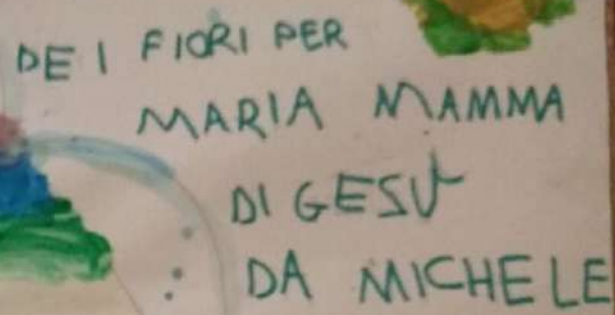 DEI FIORI PER
MARIA MAMMA
DI GESÙ
DA MICHELE